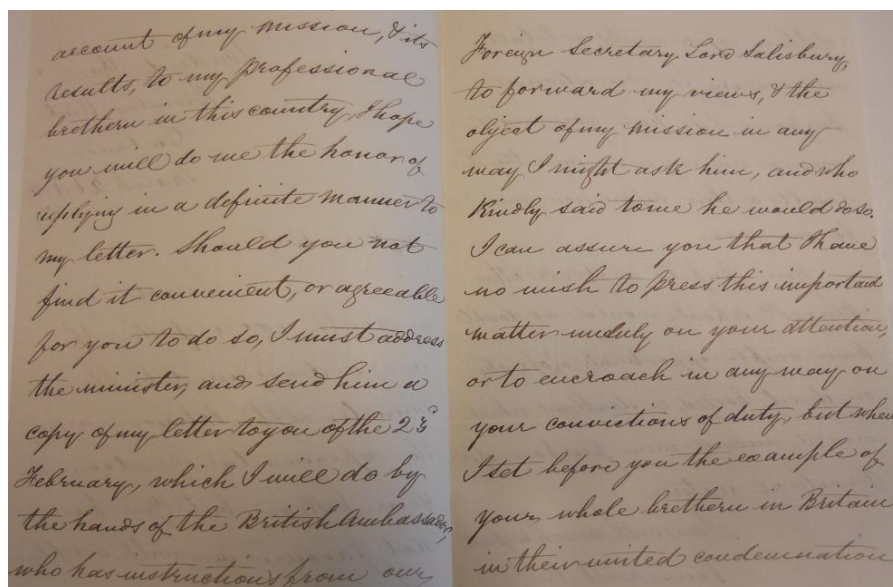 account of my mission, & its
results, to my professional
brethern in this country, I hope
you will do me the honor of
replying in a definite manner to
my letter. Should you not
find it convenient, or agreeable
for you to do so, I must address
the minister, and send him a
copy of my letter to you of the 23
February, which I will do by
the hands of the British Ambassador,
who has instructions from our
Foreign Secretary Lord Salisbury,
to forward my views, & the
object of my mission in any
way I might ask him, and who
Kindly said to me he would do so.
I can assure you that I have
no wish to press this important
matter unduly on your attention,
or to encroach in any way on
your convictions of duty, but when
I set before you the example of
your whole brethern in Britain
in their united condemnation